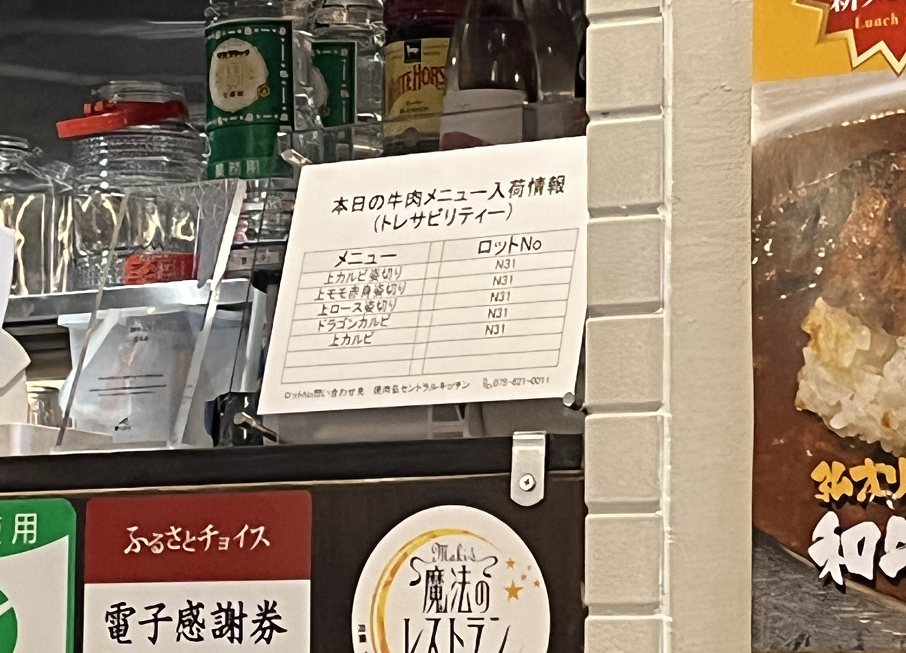 Lunch
WHITE HORSE
本日の牛肉メニュー入荷情報
(トレサビリティー)
メニュー ロットNo
上カルビ姿切り N31
上モモ赤身姿切り N31
上ロース姿切り N31
ドラゴンカルビ N31
上カルビ N31
ロットNo問い合わせ先 セントラルキッチン 079-621-0011
用
ふるさとチョイス
電子感謝券
魔法の
レストラン
弘オリ
和牛